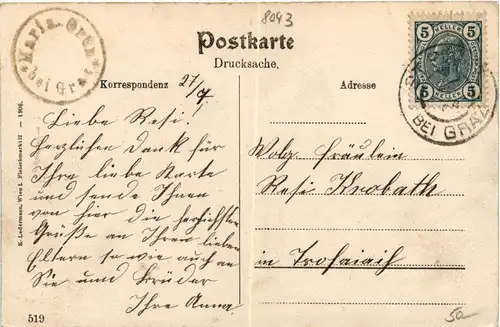 8093
Maria Grün
bei Graz
5 HELLER 5
5 HELLER 5
BEI GRAZ
Postkarte
Drucksache.
Korrespondenz 27/7
Adresse
Liebe Resi!
Herzlichen Dank für
Ihre liebe Karte
und sende Ihnen
von hier die herzichsten
Grüße an Ihren lieben
Eltern so wie auch an
Sie und Brüder
Ihre Anna
Wolg. Fräulein
Resi Knobath
in Trofaiach
K. Ledermann, Wien I. Fleischmarkt 12 — 1906.
519
50